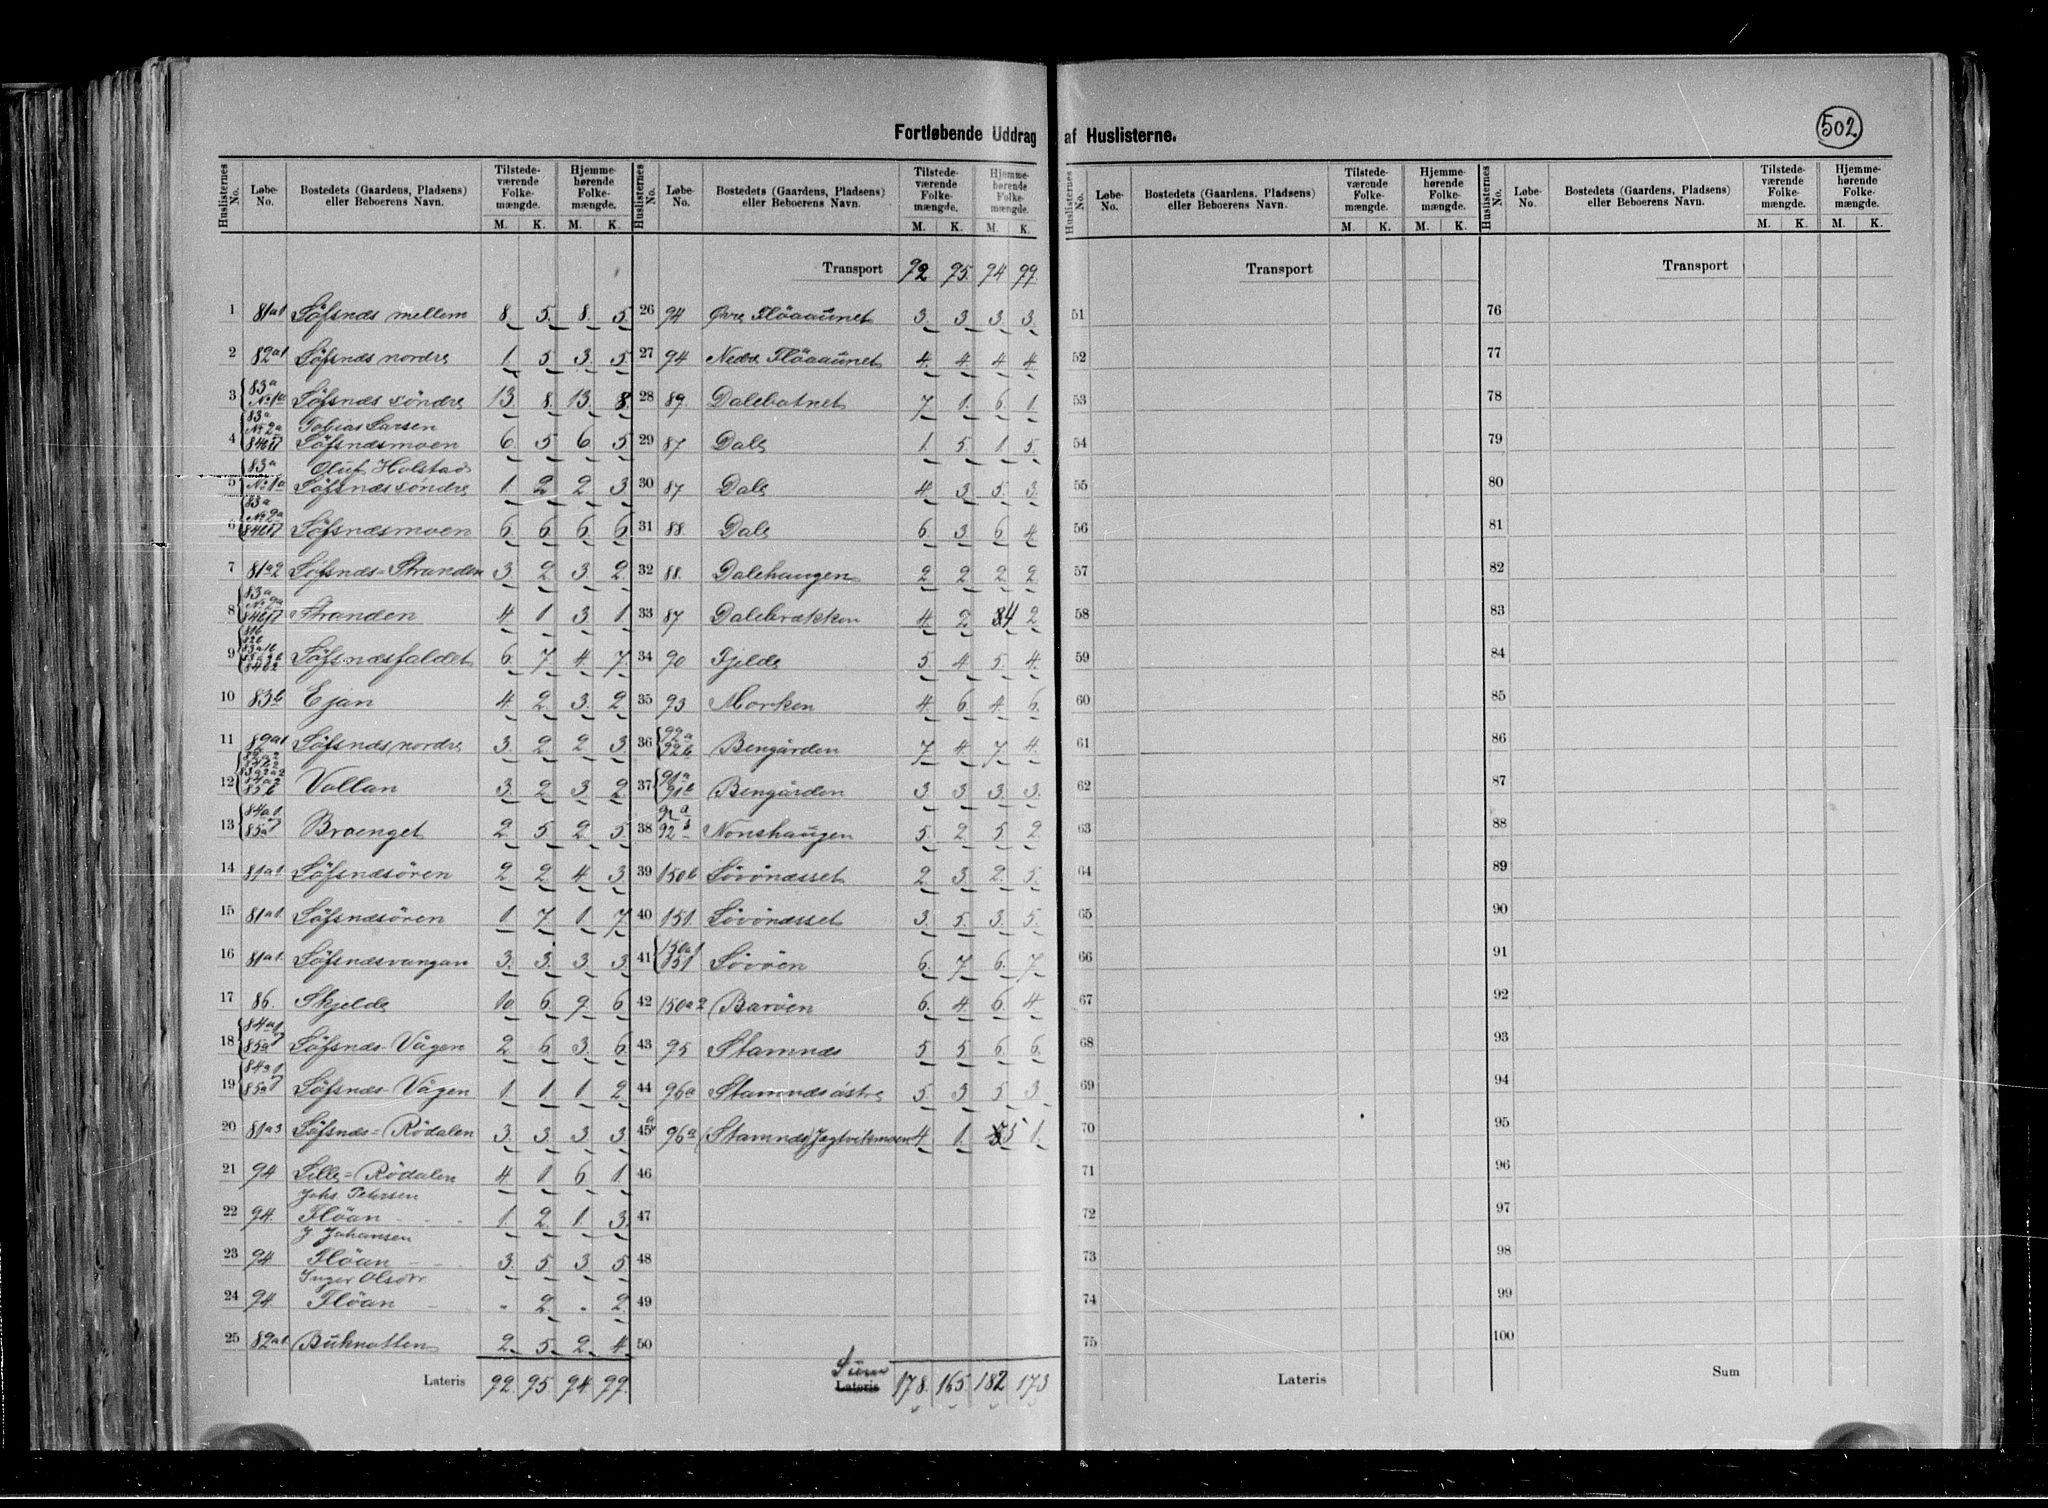 Fortløbende Uddrag af Huslisterne.
502
Huslisternes No. Løbe-No. Bostedets (Gaardens, Pladsens) eller Beboerens Navn. Tilstede-værende Folke-mængde. M. K. Hjemme-hørende Folke-mængde. M. K.
1 81a1 Söfsnæs mellem 8. 5. 8. 5.
2 82a1 Söfsnæs nordre 1. 5. 3. 5.
3 83a No 1a Söfsnæs söndre 13. 8. 13. 8.
Tobias Larsen
4 83a No 2a Söfsnæsmoen 6. 5. 6. 5.
Oluf Holstad
5 83a No 1a Söfsnæs söndre 1. 2. 2. 3.
6 83a No 2a Söfsnæsmoen 6. 6. 6. 6.
7 81a2 Söfsnæs=Stranden 3. 2. 3. 2.
8 83a No 2a Stranden 4. 1. 3. 1.
9 81b 82b Söfsnæsfaldet 6. 7. 4. 7.
10 83b Ejan 4. 2. 3. 2.
11 82a1 Söfsnæs nordre 3. 2. 2. 3.
12 85b Vollan 3. 2. 3. 2.
13 84a1 85a Braenget 2. 5. 2. 5.
14 81a1. Söfsnæsören 2. 2. 4. 3.
15 81a1. Söfsnæsören 1. 7. 1. 7.
16 81a1. Söfsnæsvangan 3. 3. 3. 3.
17 86. Skjelde 10. 6. 9. 6.
18 84a1 85a Söfsnæs-Vågen 2. 6. 3. 6.
19 84a1 85a Söfsnæs-Vågen 1. 1. 1. 2.
20 81a3 Söfsnæs=Rödalen 3. 3. 3. 3.
21 94 Lille=Rödalen 4. 1. 6. 1.
Johs. Petersen
22 94. Flöan 1. 2. 1. 3.
J. Johansen
23 94 Flöan 3. 5. 3. 5.
Inger Olsdtr
24 94. Flöan " 2. " 2.
25 82a1 Buknatten 2. 5. 2. 4.
Lateris 92. 95. 94. 99.
Huslisternes No. Løbe-No. Bostedets (Gaardens, Pladsens) eller Beboerens Navn. Tilstede-værende Folke-mængde. M. K. Hjemme-hørende Folke-mængde. M. K.
Transport 92 95. 94 99.
26 94 Øvre Flöaaunet 3. 3. 3. 3.
27 94 Nedre Flöaaunet 4. 4. 4. 4.
28 89. Dalebotnet 7. 1. 6. 1.
29 87 Dale 1. 5. 1. 5.
30 87 Dale 4. 3. 5. 3.
31 88. Dale 6. 3. 6. 4.
32 88. Dalehaugen 2. 2. 2. 2.
33 87 Dalebrækken 4. 2. 4 2.
34 90 Fjelde 5. 4. 5. 4.
35 93 Morken 4. 6. 4. 6.
36 92a 92b Bengården 7. 4. 7. 4.
37 91a 91b Bengården 3. 3. 3. 3.
38 92 a b Nonshaugen 5. 2. 5. 2.
39 150b Sövönæsset 2. 3. 2. 5.
40 151. Sövönæsset 3. 5. 3. 5.
41 150a1 151 Sövöen 6. 7. 6. 7.
42 150a2 Baröen 6. 4. 6. 4.
43 95 Stamnæs 5. 5. 6. 6.
44 96a Stamnæs östre 5. 3. 5. 3.
45a 96a (Stamnæs) Jegtvikmoen 4. 1. 5 1.
46
47
48
49
50
Sum Lateris 178. 165. 182 173
Huslisternes No. Løbe-No. Bostedets (Gaardens, Pladsens) eller Beboerens Navn. Tilstede-værende Folke-mængde. M. K. Hjemme-hørende Folke-mængde. M. K.
Transport
51
52
53
54
55
56
57
58
59
60
61
62
63
64
65
66
67
68
69
70
71
72
73
74
75
Lateris
Huslisternes No. Løbe-No. Bostedets (Gaardens, Pladsens) eller Beboerens Navn. Tilstede-værende Folke-mængde. M. K. Hjemme-hørende Folke-mængde. M. K.
Transport
76
77
78
79
80
81
82
83
84
85
86
87
88
89
90
91
92
93
94
95
96
97
98
99
100
Sum